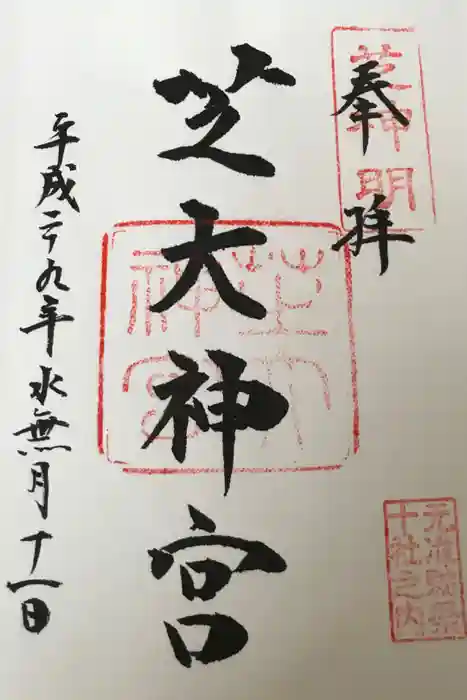 奉拝
芝神明
芝大神宮
芝大神宮
平成二九年水無月十一日
元准勅祭
十社之内